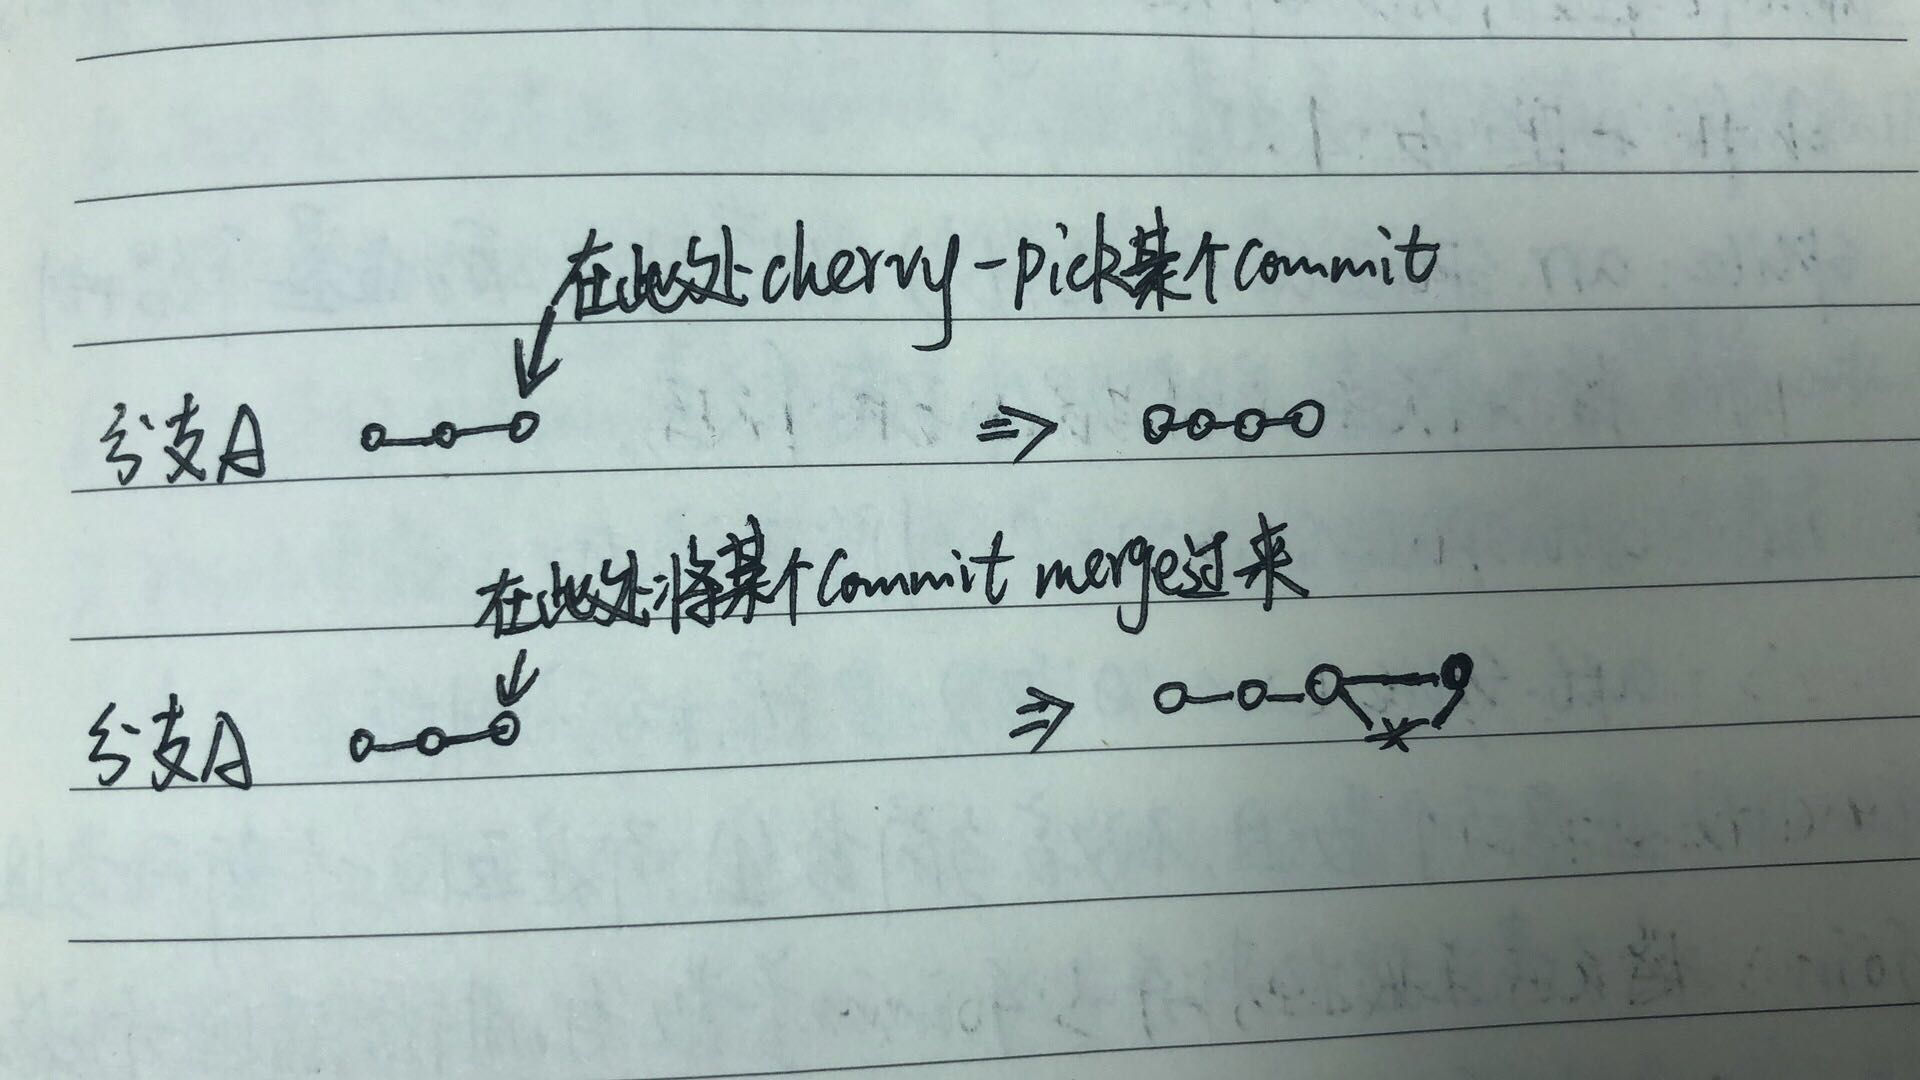 在此处cherry-pick某个commit
分支A
在此处将某个commit merge过来
分支A